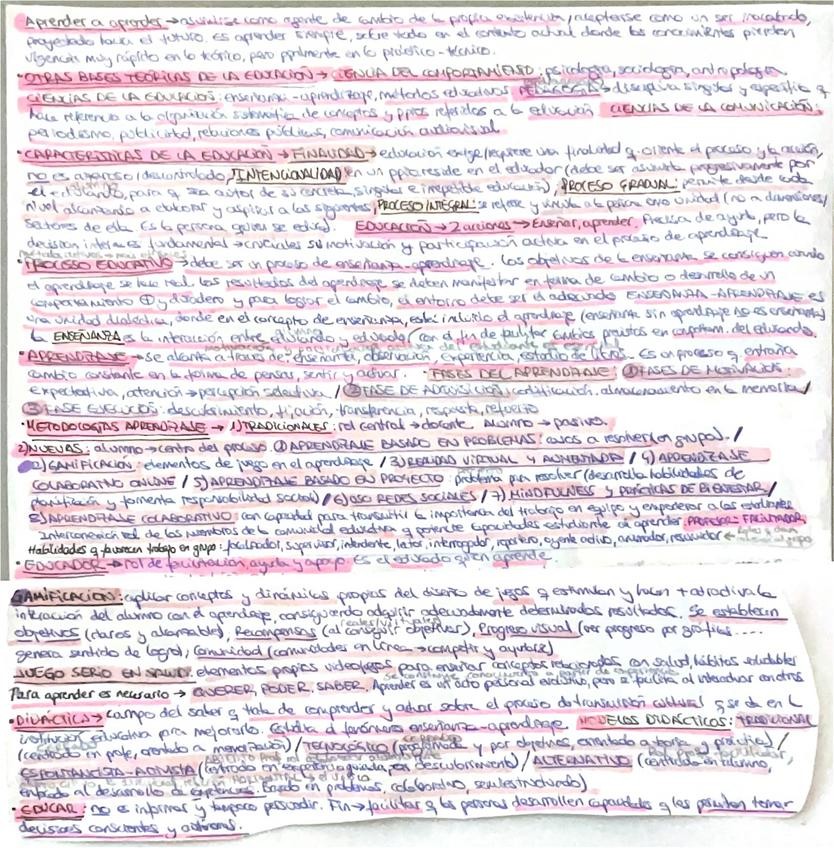 Aprender a aprender → asumirse como agente de cambio de la propia existencia / aceptarse como un ser inacabado,
proyectado hacia el futuro. es aprender siempre, sobre todo en el contexto actual donde los conocimientos pierden
vigencia muy rápido en lo teórico, pero pplmente en lo práctico-técnico.
• OTRAS BASES TEÓRICAS DE LA EDUCACIÓN → CIENCIA DEL COMPORTAMIENTO: psicología, sociología, antropología.
CIENCIAS DE LA EDUCACIÓN: enseñanza-aprendizaje, métodos educativos PEDAGOGÍA → disciplina singular y específica q
hace referencia a la organización sistemática de conceptos y ppios referidos a la educación. CIENCIAS DE LA COMUNICACIÓN:
periodismo, publicidad, relaciones públicas, comunicación audiovisual.
• CARACTERÍSTICAS DE LA EDUCACIÓN → FINALIDAD → educación exige/requiere una finalidad q oriente el proceso y la acción,
no es azaroso/descontrolado, INTENCIONALIDAD en un ppio reside en el educador (debe ser asumida progresivamente por
el educando, para q sea autor de su concreta, singular e irrepetible educación), PROCESO GRADUAL: permite desde cada
nivel alcanzado a elaborar y aspirar a los siguientes, PROCESO INTEGRAL: se refiere y vincula a la persona como unidad (no a dimensiones/
sectores de ella. Es la persona quien se educa). EDUCACIÓN → 2 acciones → Enseñar, aprender. Precisa de ayuda, pero la
decisión interna es fundamental → cruciales su motivación y participación activa en el proceso de aprendizaje.
• PROCESO EDUCATIVO → debe ser un proceso de enseñanza-aprendizaje. Los objetivos de la enseñanza se consiguen cuando
el aprendizaje se hace real. Los resultados del aprendizaje se deben manifestar en forma de cambio o desarrollo de un
comportamiento ⊕ y duradero y para lograr el cambio, el entorno debe ser el adecuado. ENSEÑANZA-APRENDIZAJE es
una unidad dialéctica, donde en el concepto de enseñanza, está incluido el aprendizaje (enseñanza sin aprendizaje no es enseñanza)
La ENSEÑANZA es la interacción entre educando y educador con el fin de facilitar cambios previstos en comportam. del educando.
• APRENDIZAJE → se alcanza a través de enseñanza, observación, experiencia, estudio de libros. Es un proceso q entraña
cambio constante en la forma de pensar, sentir y actuar. FASES DEL APRENDIZAJE: ① FASES DE MOTIVACIÓN:
expectativa, atención → percepción selectiva / ② FASE DE ADQUISICIÓN: codificación, almacenamiento en la memoria /
③ FASE EJECUCIÓN: descubrimiento, fijación, transferencia, respuesta, refuerzo
• METODOLOGÍAS APRENDIZAJE → 1) TRADICIONALES: rol central → docente. Alumno → pasivo.
2) NUEVAS: alumno → centro del proceso. ① APRENDIZAJE BASADO EN PROBLEMAS: casos a resolver (en grupo). /
2) GAMIFICACIÓN: elementos de juego en el aprendizaje / 3) REALIDAD VIRTUAL Y AUMENTADA / 4) APRENDIZAJE
COLABORATIVO ONLINE / 5) APRENDIZAJE BASADO EN PROYECTO: problema para resolver (desarrolla habilidades de
planificación y fomenta responsabilidad social) / 6) USO REDES SOCIALES / 7) MINDFULNESS Y PRÁCTICAS DE BIENESTAR /
8) APRENDIZAJE COLABORATIVO: con capacidad para transmitir la importancia del trabajo en equipo y empoderar a los estudiantes
Interconexión real de los miembros de la comunidad educativa y potencia capacidades estudiante al aprender. PROFESOR = FACILITADOR
Habilidades q favorecen trabajo en grupo: focalizador, supervisor, intendente, lector, interrogador, repetitivo, oyente activo, animador, resumidor
• EDUCADOR → rol de facilitación, ayuda y apoyo. Es el educado quien aprende.
GAMIFICACIÓN: aplicar conceptos y dinámicas propias del diseño de juegos q estimulan y hacen + atractiva la
interacción del alumno con el aprendizaje, consiguiendo adquirir adecuadamente determinados resultados. Se establecen
objetivos (claros y alcanzables), Recompensas (al conseguir objetivos), Progreso visual (ver progreso por gráficos....
genera sentido de logro), Comunidad (comunidades en línea → competir y ayudarse)
JUEGO SERIO EN SALUD: elementos propios videojuegos para enseñar conceptos relacionados con salud, hábitos saludables
Para aprender es necesario → QUERER, PODER, SABER. Aprender es un acto personal evolutivo, pero se facilita al interactuar con otros
• DIDÁCTICA → Campo del saber q trata de comprender y actuar sobre el proceso de transmisión cultural q se da en la
institución educativa para mejorarlo. Estudia el fenómeno enseñanza-aprendizaje. MODELOS DIDÁCTICOS: TRADICIONAL
(centrado en profe, orientado a memorización) / TECNOLÓGICO (programado y por objetivos, orientado a teoría y práctica) /
ESPONTANEÍSTA-ACTIVISTA (centrado en descubrimiento) / ALTERNATIVO (centrado en alumno,
enfocado al desarrollo de capacidades. Basado en problemas, colaborativo, semiestructurado)
• EDUCAR: no es informar y tampoco persuadir. Fin → facilitar q las personas desarrollen capacidades q les permitan tomar
decisiones conscientes y autónomas.